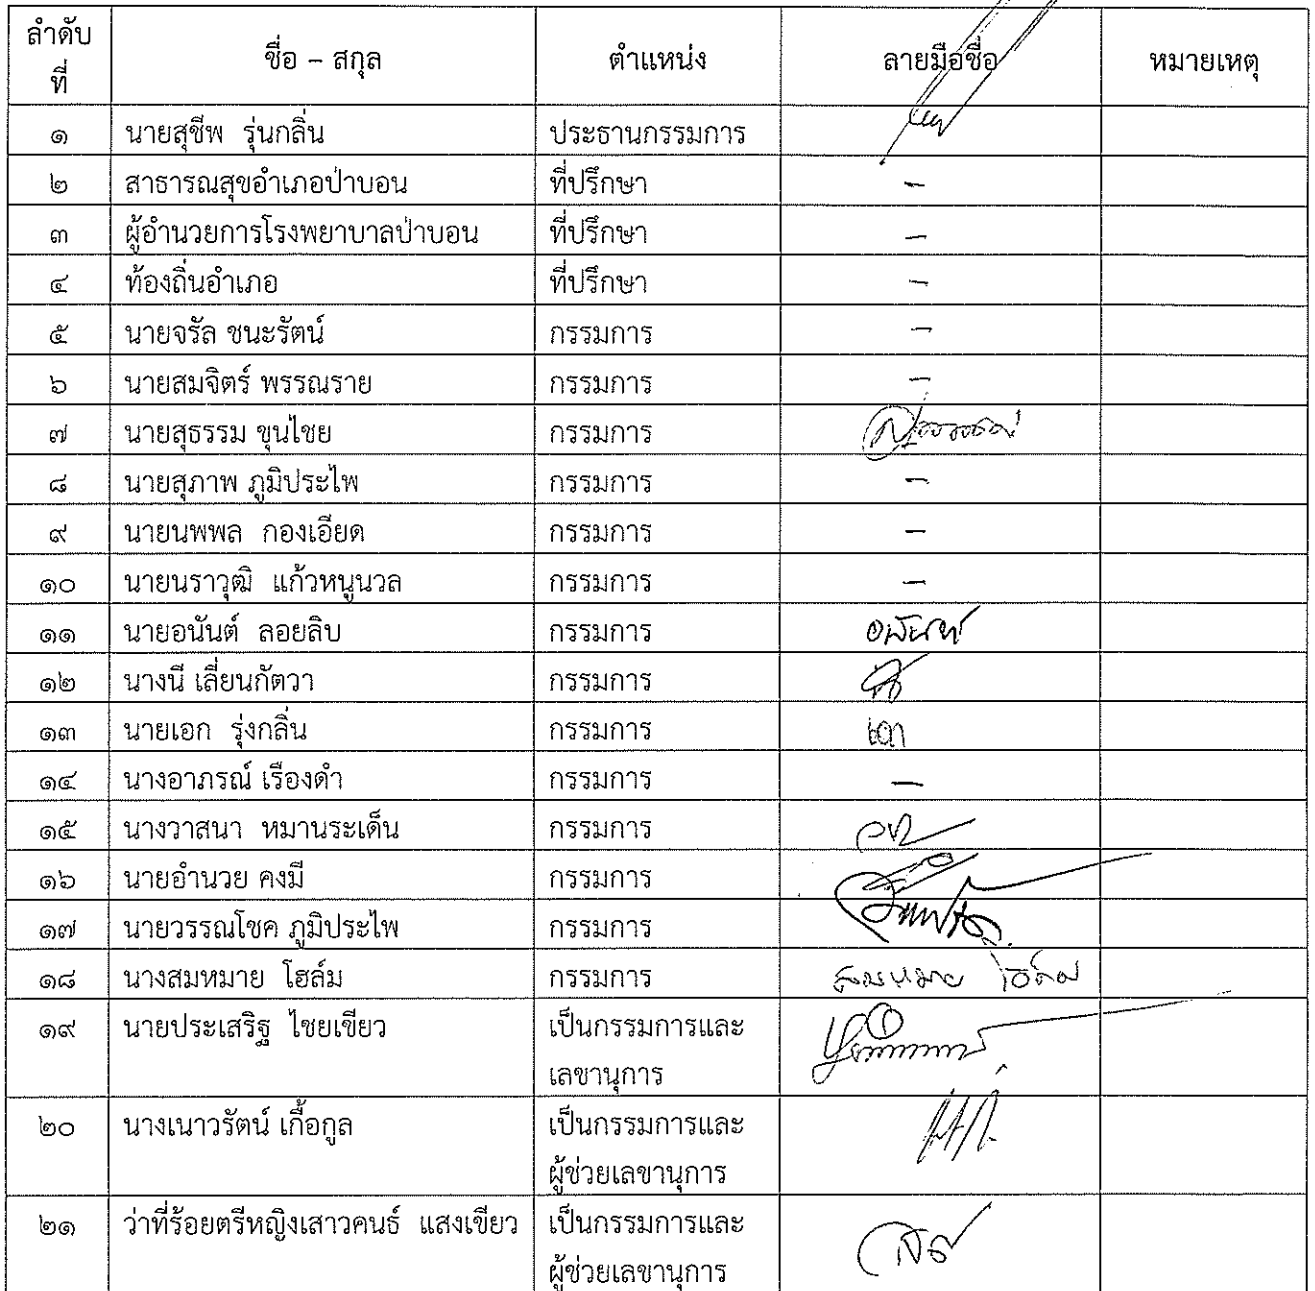 ลำดับ
ที่
ชื่อ – สกุล
ตำแหน่ง
ลายมือชื่อ
หมายเหตุ
๑ นายสุชีพ รุ่นกลิ่น ประธานกรรมการ
๒ สาธารณสุขอำเภอป่าบอน ที่ปรึกษา -
๓ ผู้อำนวยการโรงพยาบาลป่าบอน ที่ปรึกษา -
๔ ท้องถิ่นอำเภอ ที่ปรึกษา -
๕ นายจรัล ชนะรัตน์ กรรมการ -
๖ นายสมจิตร์ พรรณราย กรรมการ -
๗ นายสุธรรม ขุนไชย กรรมการ
๘ นายสุภาพ ภูมิประไพ กรรมการ -
๙ นายนพพล กองเอียด กรรมการ -
๑๐ นายนราวุฒิ แก้วหนูนวล กรรมการ -
๑๑ นายอนันต์ ลอยลิบ กรรมการ อนันท์
๑๒ นางนี เลี่ยนกัตวา กรรมการ
๑๓ นายเอก รุ่งกลิ่น กรรมการ เอก
๑๔ นางอาภรณ์ เรืองดำ กรรมการ -
๑๕ นางวาสนา หมานระเด็น กรรมการ
๑๖ นายอำนวย คงมี กรรมการ
๑๗ นายวรรณโชค ภูมิประไพ กรรมการ
๑๘ นางสมหมาย โฮล์ม กรรมการ สมหมาย โฮล์ม
๑๙ นายประเสริฐ ไชยเขียว เป็นกรรมการและ
เลขานุการ
๒๐ นางเนาวรัตน์ เกื้อกูล เป็นกรรมการและ
ผู้ช่วยเลขานุการ
๒๑ ว่าที่ร้อยตรีหญิงเสาวคนธ์ แสงเขียว เป็นกรรมการและ
ผู้ช่วยเลขานุการ